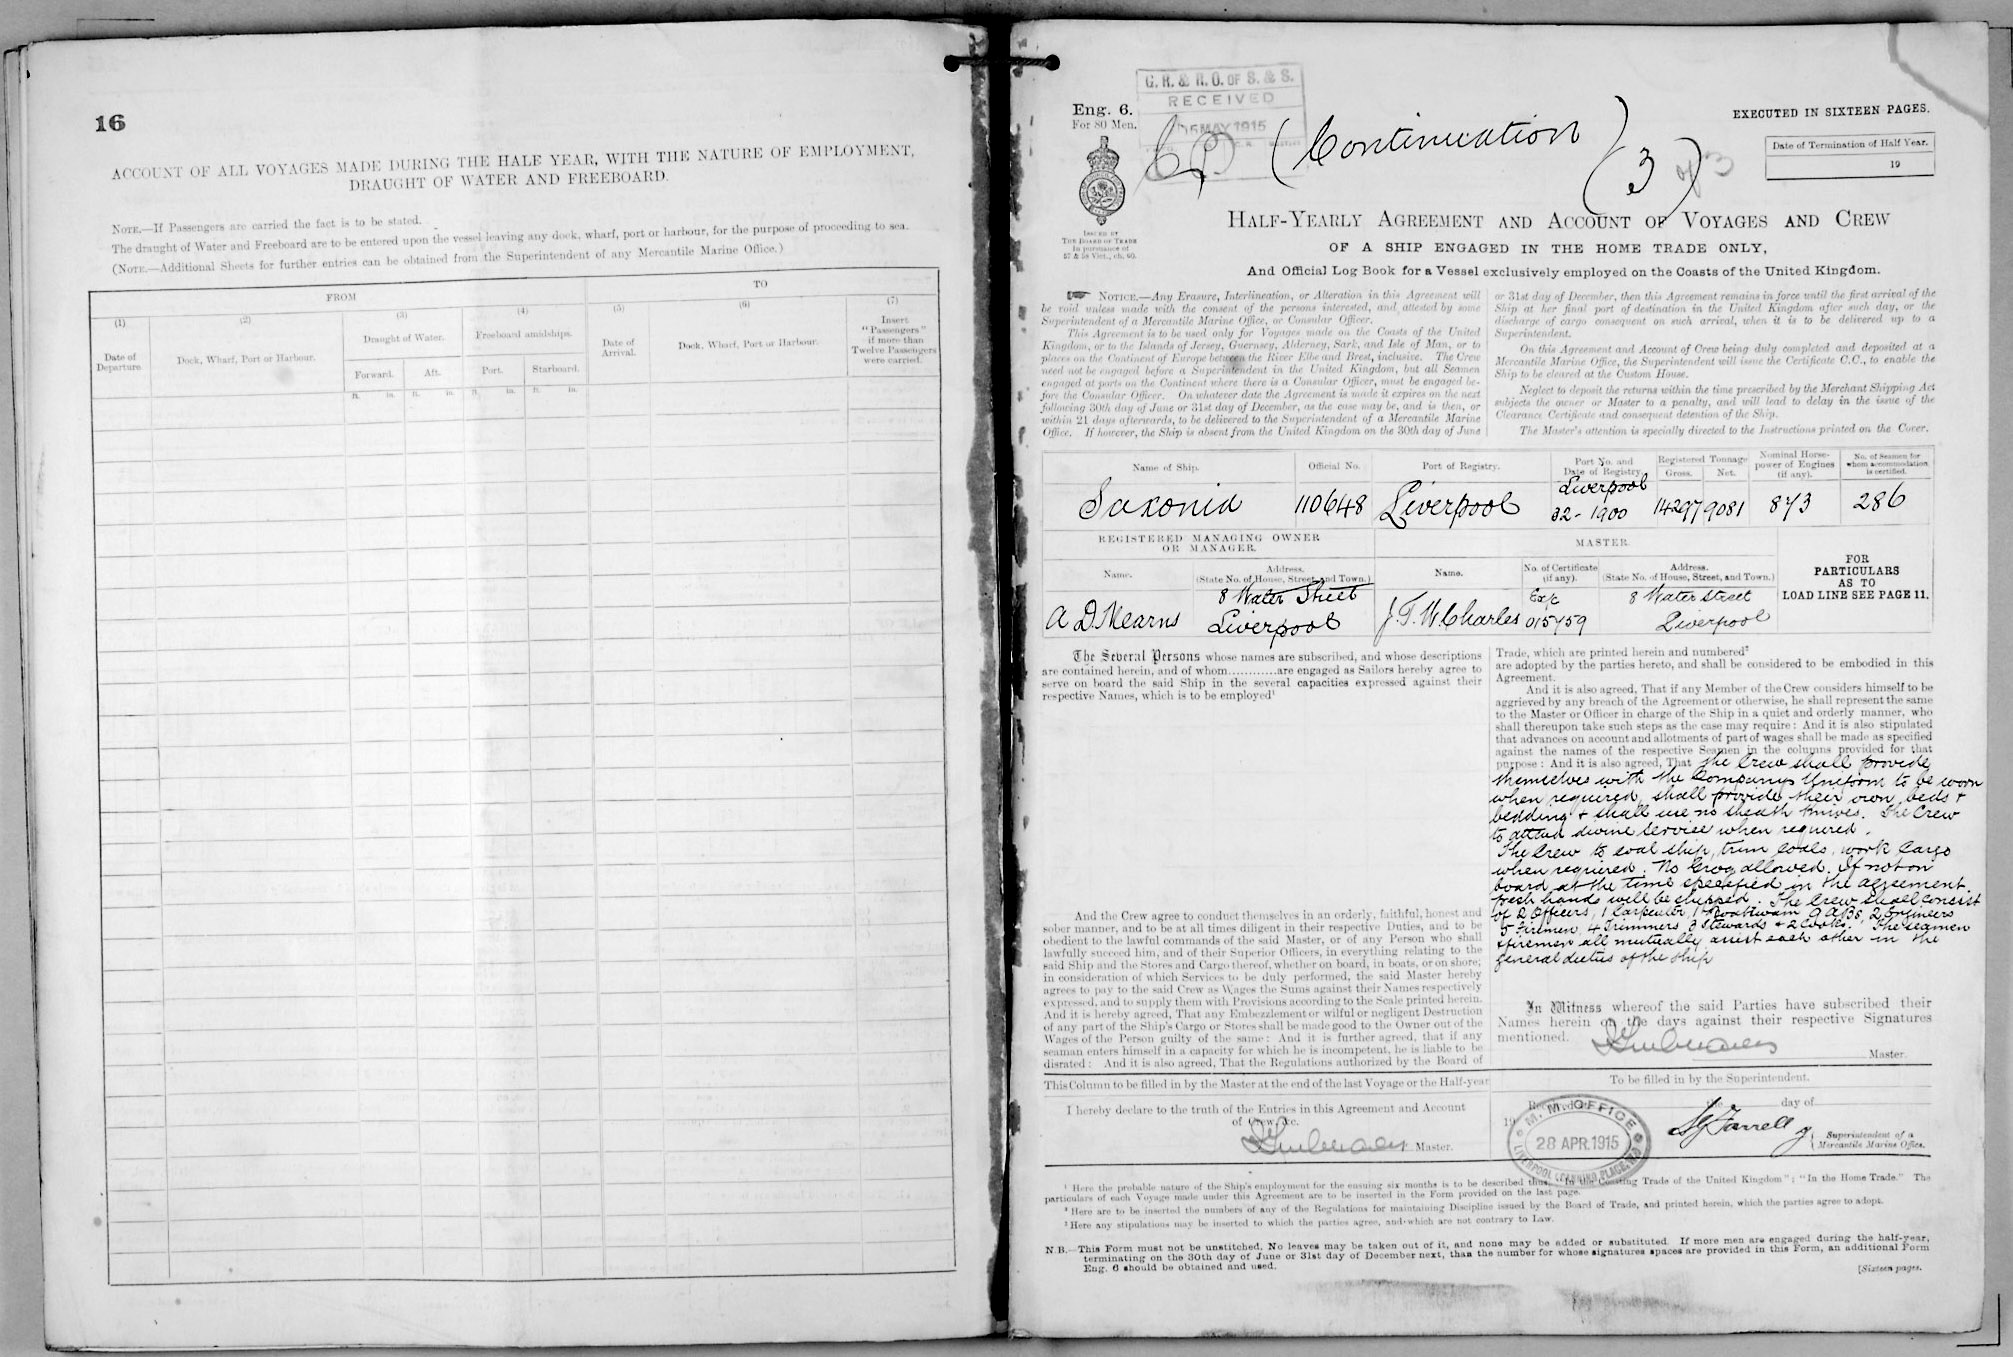 16
ACCOUNT OF ALL VOYAGES MADE DURING THE HALF YEAR, WITH THE NATURE OF EMPLOYMENT,
DRAUGHT OF WATER AND FREEBOARD.
NOTE.—If Passengers are carried the fact is to be stated.
The draught of Water and Freeboard are to be entered upon the vessel leaving any dock, wharf, port or harbour, for the purpose of proceeding to sea.
(NOTE.—Additional Sheets for further entries can be obtained from the Superintendent of any Mercantile Marine Office.)
FROM
TO
(1)
(2)
(3)
(4)
(5)
(6)
(7)
Date of
Departure.
Dock, Wharf, Port or Harbour.
Draught of Water.
Forward.
Aft.
Freeboard amidships.
Port.
Starboard.
Date of
Arrival.
Dock, Wharf, Port or Harbour.
Insert
"Passengers"
if more than
Twelve Passengers
were carried.
ft. in. ft. in. ft. in. ft. in.
Eng. 6.
For 80 Men.
G. R. & R. O. OF S. & S.
RECEIVED
5 MAY 1915
(Continuation
(3) of 3
EXECUTED IN SIXTEEN PAGES.
Date of Termination of Half Year.
19
ISSUED BY
THE BOARD OF TRADE
In pursuance of
57 & 58 Vict., ch. 60.
HALF-YEARLY AGREEMENT AND ACCOUNT OF VOYAGES AND CREW
OF A SHIP ENGAGED IN THE HOME TRADE ONLY,
And Official Log Book for a Vessel exclusively employed on the Coasts of the United Kingdom.
NOTICE.—Any Erasure, Interlineation, or Alteration in this Agreement will
be void unless made with the consent of the persons interested, and attested by some
Superintendent of a Mercantile Marine Office, or Consular Officer.
This Agreement is to be used only for Voyages made on the Coasts of the United
Kingdom, or to the Islands of Jersey, Guernsey, Alderney, Sark, and Isle of Man, or to
places on the Continent of Europe between the River Elbe and Brest, inclusive. The Crew
need not be engaged before a Superintendent in the United Kingdom, but all Seamen
engaged at ports on the Continent where there is a Consular Officer, must be engaged be-
fore the Consular Officer. On whatever date the Agreement is made it expires on the next
following 30th day of June or 31st day of December, as the case may be, and is then, or
within 21 days afterwards, to be delivered to the Superintendent of a Mercantile Marine
Office. If however, the Ship is absent from the United Kingdom on the 30th day of June
or 31st day of December, then this Agreement remains in force until the first arrival of the
Ship at her final port of destination in the United Kingdom after such day, or the
discharge of cargo consequent on such arrival, when it is to be delivered up to a
Superintendent.
On this Agreement and Account of Crew being duly completed and deposited at a
Mercantile Marine Office, the Superintendent will issue the Certificate C.C., to enable the
Ship to be cleared at the Custom House.
Neglect to deposit the returns within the time prescribed by the Merchant Shipping Act
subjects the owner or Master to a penalty, and will lead to delay in the issue of the
Clearance Certificate and consequent detention of the Ship.
The Master's attention is specially directed to the Instructions printed on the Cover.
Name of Ship.
Official No.
Port of Registry.
Port No. and
Date of Registry.
Registered Tonnage
Gross. Net.
Nominal Horse-
power of Engines
(if any).
No. of Seamen for
whom accommodation
is certified.
Saxonia
110648
Liverpool
Liverpool
32 - 1900
14297
9081
873
286
REGISTERED MANAGING OWNER
OR MANAGER.
MASTER.
Name.
Address.
(State No. of House, Street, and Town.)
Name.
No. of Certificate
(if any).
Address.
(State No. of House, Street, and Town.)
FOR
PARTICULARS
AS TO
LOAD LINE SEE PAGE 11.
A D. Mearns
8 Water Street
Liverpool
J. T. W. Charles
015759
8 Water Street
Liverpool
The Several Persons whose names are subscribed, and whose descriptions
are contained herein, and of whom............are engaged as Sailors hereby agree to
serve on board the said Ship in the several capacities expressed against their
respective Names, which is to be employed¹
And the Crew agree to conduct themselves in an orderly, faithful, honest and
sober manner, and to be at all times diligent in their respective Duties, and to be
obedient to the lawful commands of the said Master, or of any Person who shall
lawfully succeed him, and of their Superior Officers, in everything relating to the
said Ship and the Stores and Cargo thereof, whether on board, in boats, or on shore;
in consideration of which Services to be duly performed, the said Master hereby
agrees to pay to the said Crew as Wages the Sums against their Names respectively
expressed, and to supply them with Provisions according to the Scale printed herein.
And it is hereby agreed, That any Embezzlement or wilful or negligent Destruction
of any part of the Ship's Cargo or Stores shall be made good to the Owner out of the
Wages of the Person guilty of the same: And it is further agreed, that if any
seaman enters himself in a capacity for which he is incompetent, he is liable to be
disrated: And it is also agreed, That the Regulations authorized by the Board of
Trade, which are printed herein and numbered²
are adopted by the parties hereto, and shall be considered to be embodied in this
Agreement.
And it is also agreed, That if any Member of the Crew considers himself to be
aggrieved by any breach of the Agreement or otherwise, he shall represent the same
to the Master or Officer in charge of the Ship in a quiet and orderly manner, who
shall thereupon take such steps as the case may require: And it is also stipulated
that advances on account and allotments of part of wages shall be made as specified
against the names of the respective Seamen in the columns provided for that
purpose: And it is also agreed, That the Crew shall provide
themselves with the Companys Uniform to be worn
when required, shall provide their own beds +
bedding + shall use no sheath knives. The Crew
to attend divine service when required.
The Crew to coal ship, trim coals, work Cargo
when required. No Grog allowed. If not on
board at the time specified in the agreement.
fresh hands will be shipped. The Crew shall consist
of 2 Officers, 1 Carpenter, 1 Boatswain 9 ABs, 2 Engineers
5 Firemen, 4 Trimmers 3 Stewards + 2 Cooks. The seamen
+ firemen all mutually assist each other in the
general duties of the ship
In Witness whereof the said Parties have subscribed their
Names herein on the days against their respective Signatures
mentioned.
Master.
This Column to be filled in by the Master at the end of the last Voyage or the Half-year
I hereby declare to the truth of the Entries in this Agreement and Account
of Crew, &c.
Master.
To be filled in by the Superintendent.
day of
19
M. M. OFFICE
28 APR. 1915
Farrell
Superintendent of a
Mercantile Marine Office.
¹ Here the probable nature of the Ship's employment for the ensuing six months is to be described thus, "In the Coasting Trade of the United Kingdom"; "In the Home Trade." The
particulars of each Voyage made under this Agreement are to be inserted in the Form provided on the last page.
² Here are to be inserted the numbers of any of the Regulations for maintaining Discipline issued by the Board of Trade, and printed herein, which the parties agree to adopt.
³ Here any stipulations may be inserted to which the parties agree, and which are not contrary to Law.
N.B.—This Form must not be unstitched, No leaves may be taken out of it, and none may be added or substituted. If more men are engaged during the half-year,
terminating on the 30th day of June or 31st day of December next, than the number for whose signatures spaces are provided in this Form, an additional Form
Eng. 6 should be obtained and used.
[Sixteen pages.